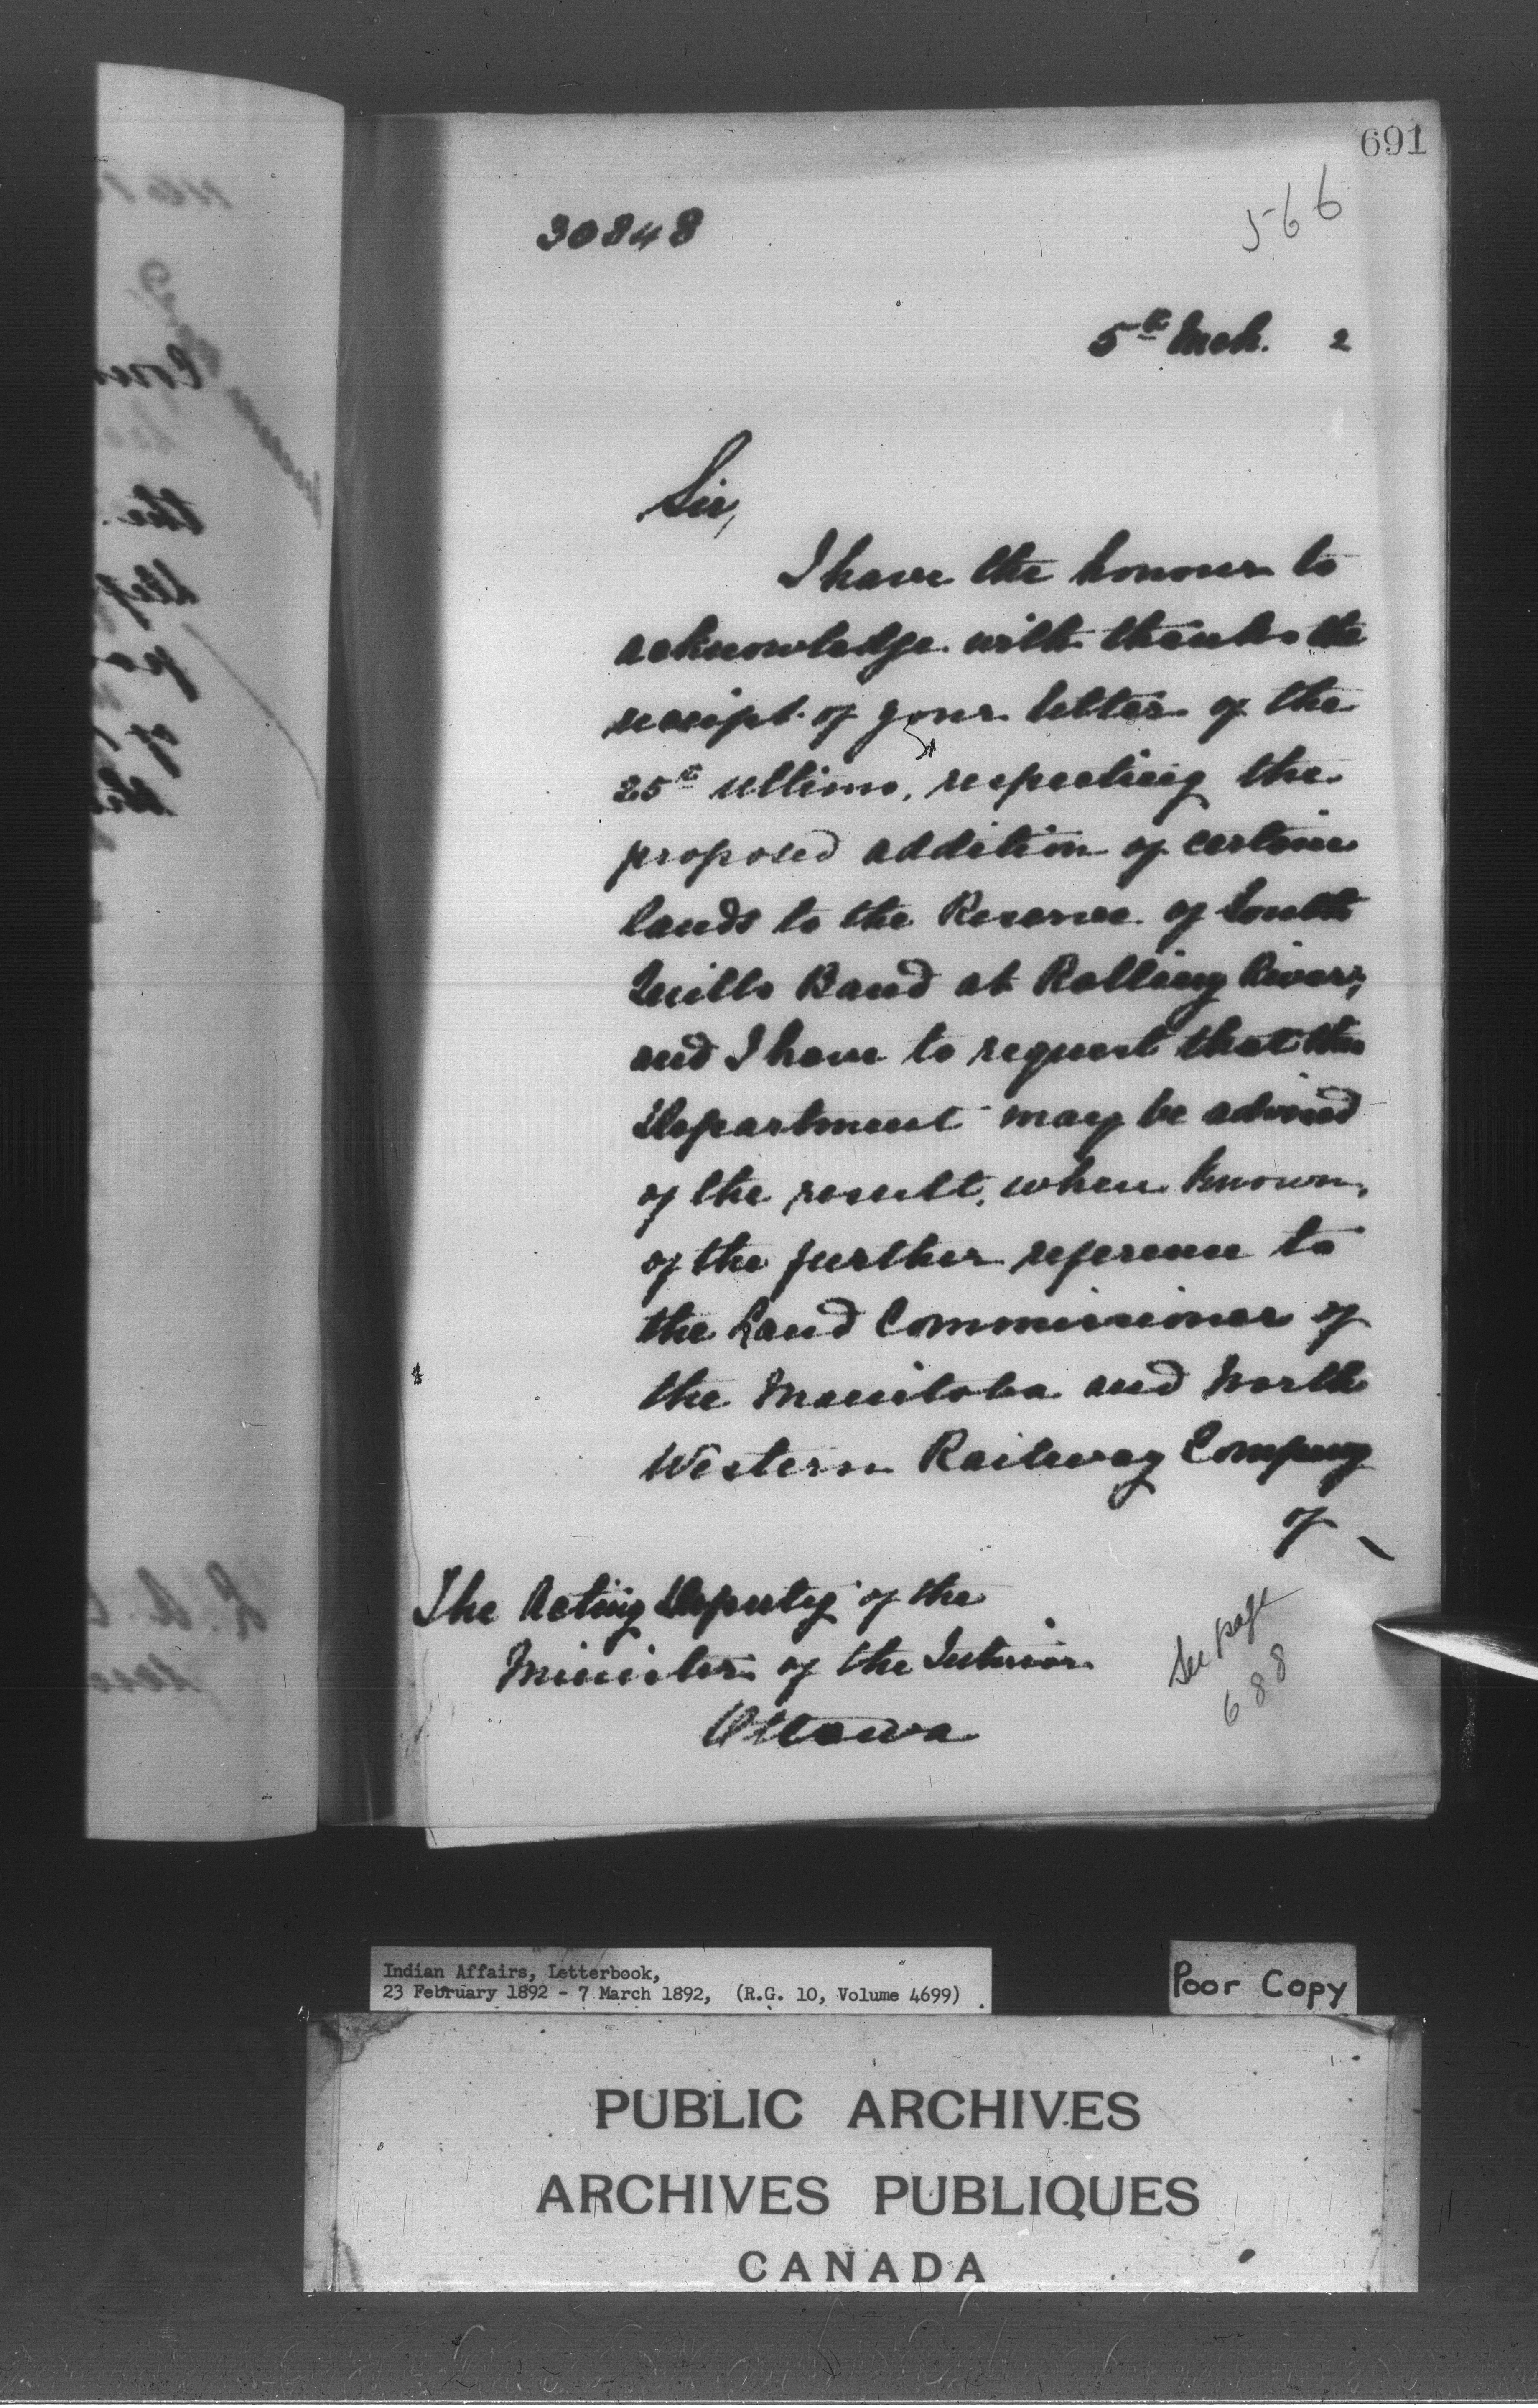 691
566
30848
5th Mch. 2
Sir,
I have the honour to
acknowledge with thanks the
receipt of your letter of the
25th ultimo, respecting the
proposed addition of certain
lands to the Reserve of South
Quills Band at Rolling River,
and I have to request that this
Department may be advised
of the result, when known,
of the further reference to
the Land Commissioner of
the Manitoba and North
Western Railway Company
of
The Acting Deputy of the
Minister of the Interior
Ottawa
See page
688
Indian Affairs, Letterbook,
23 February 1892 - 7 March 1892, (R.G. 10, Volume 4699)
Poor Copy
PUBLIC ARCHIVES
ARCHIVES PUBLIQUES
CANADA